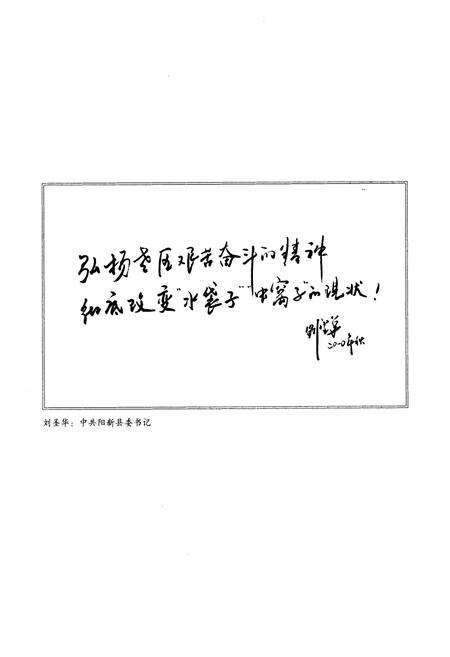 弘扬老区艰苦奋斗的精神
彻底改变“水袋子”“虫窝子”的现状！
刘圣华
2000年秋
刘圣华：中共阳新县委书记